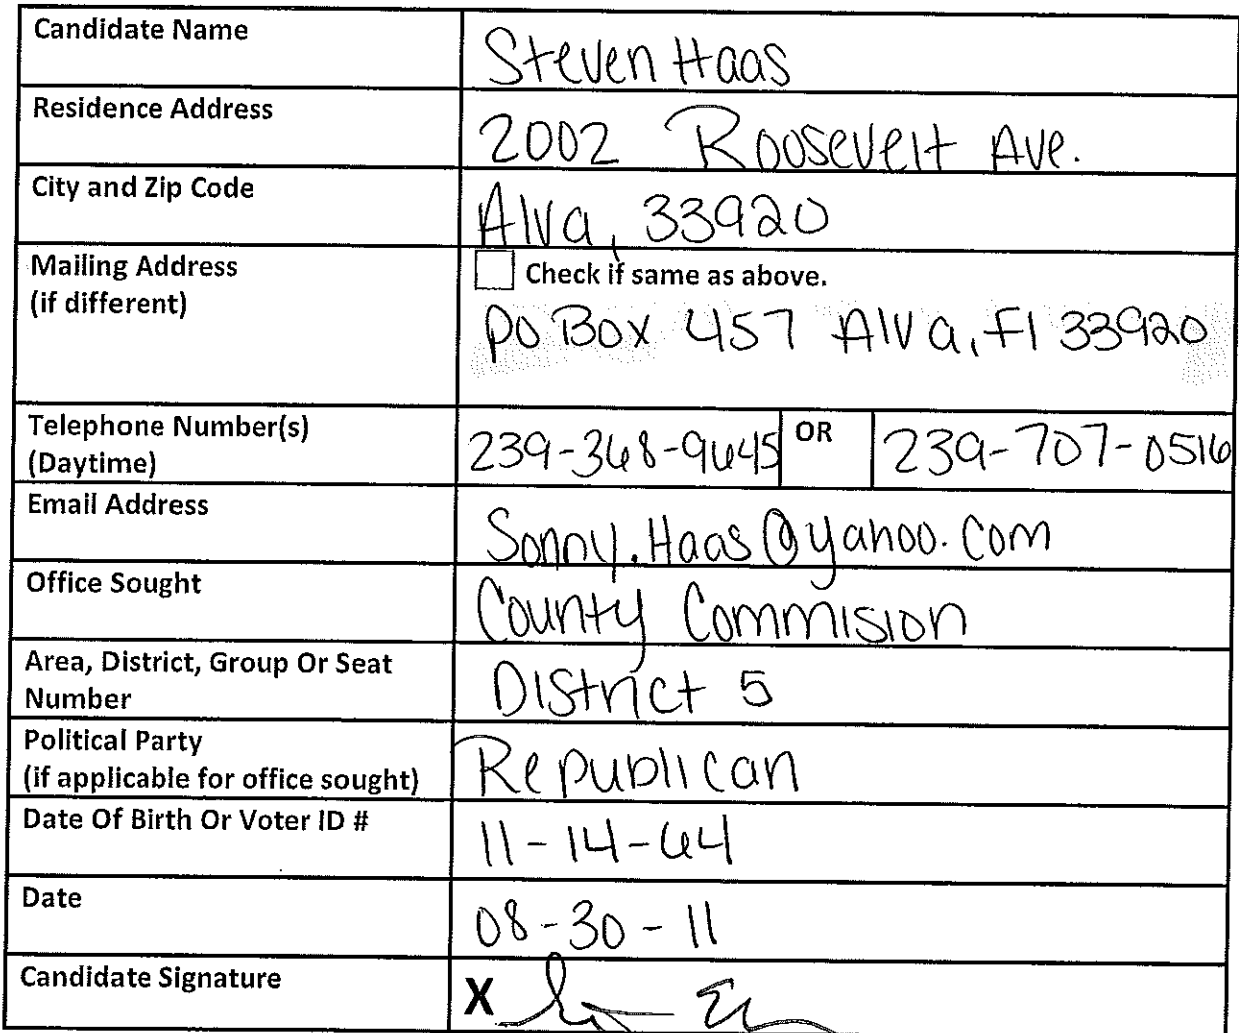 Candidate Name Steven Haas
Residence Address 2002 Roosevelt Ave.
City and Zip Code Alva, 33920
Mailing Address
(if different)
Check if same as above.
PO Box 457 Alva, Fl 33920
Telephone Number(s)
(Daytime)
239-368-9645 OR 239-707-0516
Email Address Sonny.Haas@yahoo.com
Office Sought County Commision
Area, District, Group Or Seat
Number
District 5
Political Party
(if applicable for office sought)
Republican
Date Of Birth Or Voter ID # 11-14-64
Date 08-30-11
Candidate Signature X